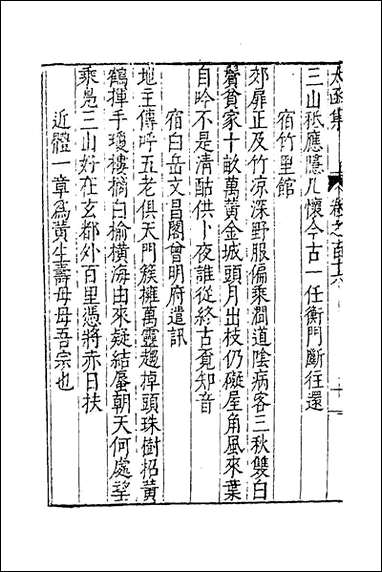 太函集 卷之百十六 十
三山秪應隱几懷今古一任衡門斷往還
宿竹里館
郊扉正及竹凉深野服偏乗澗道陰病客三秋雙白
鬢貧家十畝萬黄金城頭月出枝仍礙屋角風來葉
自吟不是清酤供卜夜誰從終古覓知音
宿白岳文昌閣曾明府遣訊
地主傳呼五老俱天門簇擁萬靈趨掉頭珠樹招黄
鶴揮手瓊樓摘白榆橫海由來疑結蜃朝天何處望
乘鳬三山好在玄都外百里憑將赤日扶
近體一章為黄生壽母母吾宗也